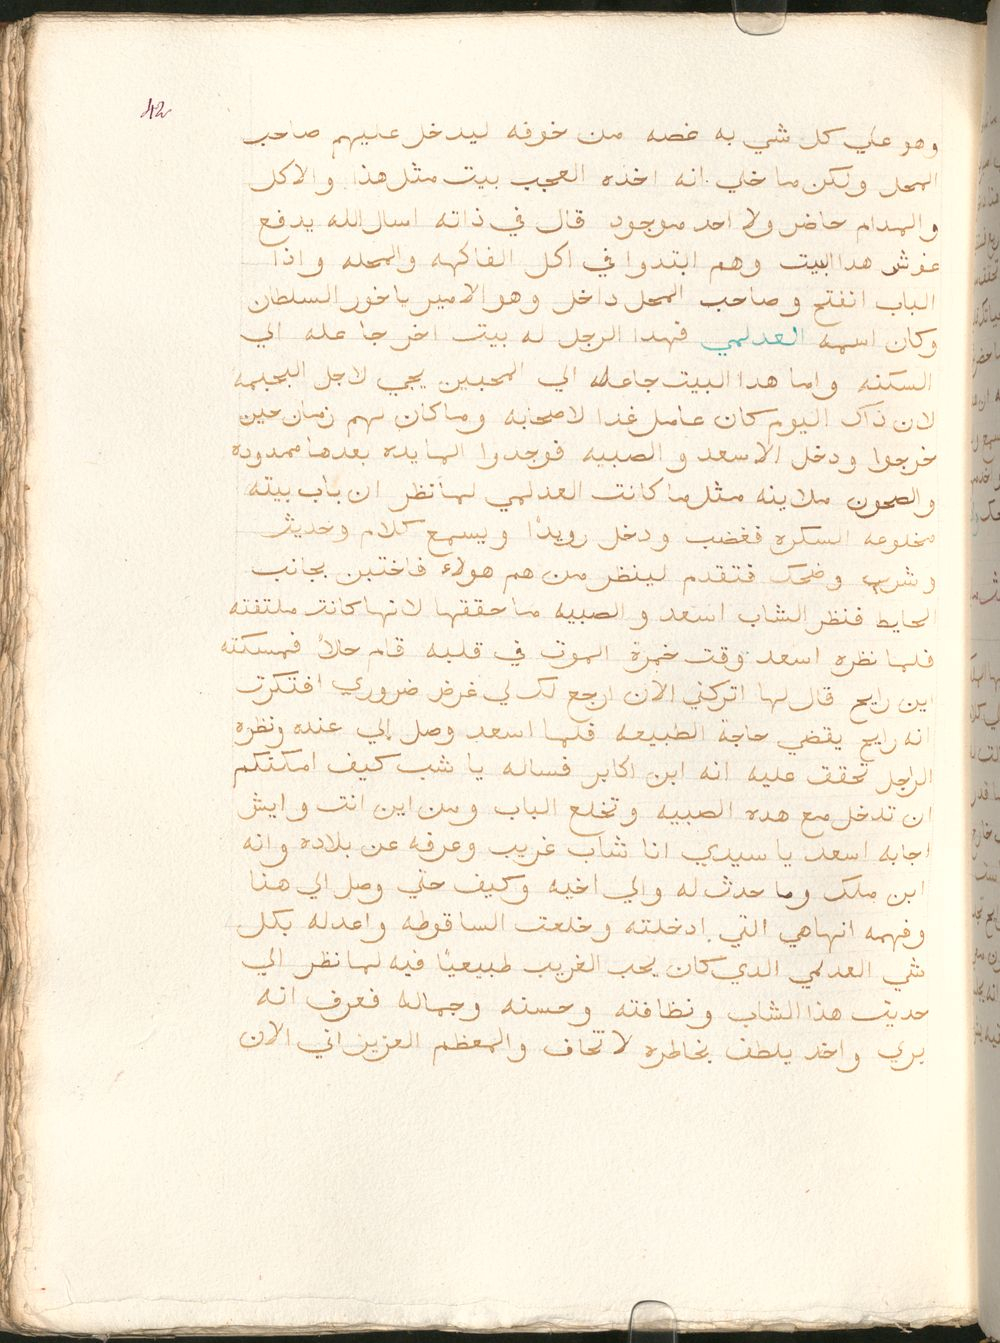 42
وهو علي كل شي به غصه من خوفه ليدخل عليهم صاحب
المحل ولكن ما خلي انه اخذه العجب بيت مثل هذا والاكل
والمدام حاضر ولا احد موجود قال في ذاته اسال الله يدفع
هدا البيت وهم ابتدوا في اكل الفاكهه والمحله واذا
الباب انفتح وصاحب المحل داخل وهو الامير ياخور السلطان
وكان اسمه العدلمي فهدا الرجل له بيت اخر جاعله الي
السكنه واما هدا البيت جاعله الي المحبين يجي لاجل
لان ذآك اليوم كان عامل غدا لاصحابه وما كان لهم زمان حين
خرجوا ودخل الاسعد والصبيه فوجدوا المايده بعدها ممدوده
والصحون ملاينه مثل ما كانت العدلمي لما نظر ان باب بيته
مخلوعه السكره فغضب ودخل رويدًا ويسمع كلام وحديث
وشرب وضحك فتقدم لينظر من هم هولاء فاختبن بجانب
الحايط فنظر الشاب اسعد والصبيه ما حققها لانها كانت ملتفته
فلما نظره اسعد وقت خمرة الموت في قلبه قام حالاً فمسكته
اين رايح قال لها اتركني الآن ارجع لك لي غرض ضروري افتكرت
انه رايح يقضي حاجة الطبيعه فلما اسعد وصل إلي عنده ونظره
الراجل تحقق عليه انه ابن اكابر فساله يا شب كيف امكنكم
ان تدخل مع هده الصبيه وتخلع الباب ومن اين انت وايش
اجابه اسعد يا سيدي انا شاب غريب وعرفه عن بلاده وانه
ابن ملك وما حدث له والي اخيه وكيف حتي وصل الي هنا
وفهمه انها هي التي ادخلته وخلعت الساقوطه واعدله بكل
شي العدلمي الدي كان يحب الغريب طبيعيًا فيه لما نظر الي
حديث هذا الشاب ونظافته وحسنه وجماله فعرف انه
بري واخد يلطف بخاطره لا تخاف والمعظم العزيز اني الان